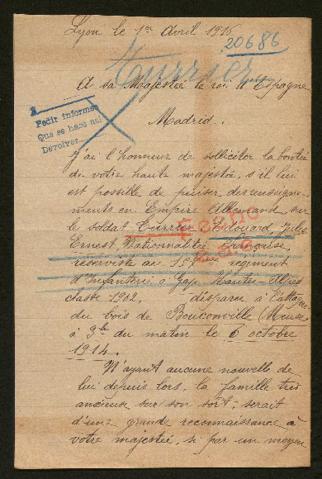 Lyon le 1er Avril 1916
20686
Turrier
A sa Majesté le roi d'Espagne
Madrid.
Pedir informe
Que se hace aqui
Devolver
J'ai l'honneur de solliciter la bonté
de votre haute majesté, s'il lui
est possible de puiser des renseigne-
ments en Empire Allemand, sur
le soldat Turrier Edouard, Jules
Ernest, Nationalité française,
réserviste au régiment
d'Infanterie à Gap Hautes-Alpes
classe 1902, disparu à l'attaque
du bois de Bouconville (Meuse)
à 9h du matin le 6 octobre
1914.
N'ayant aucune nouvelle de
lui depuis lors, la famille très
anxieuse sur son sort, serait
d'une grande reconnaissance à
votre majesté, si par un moyen